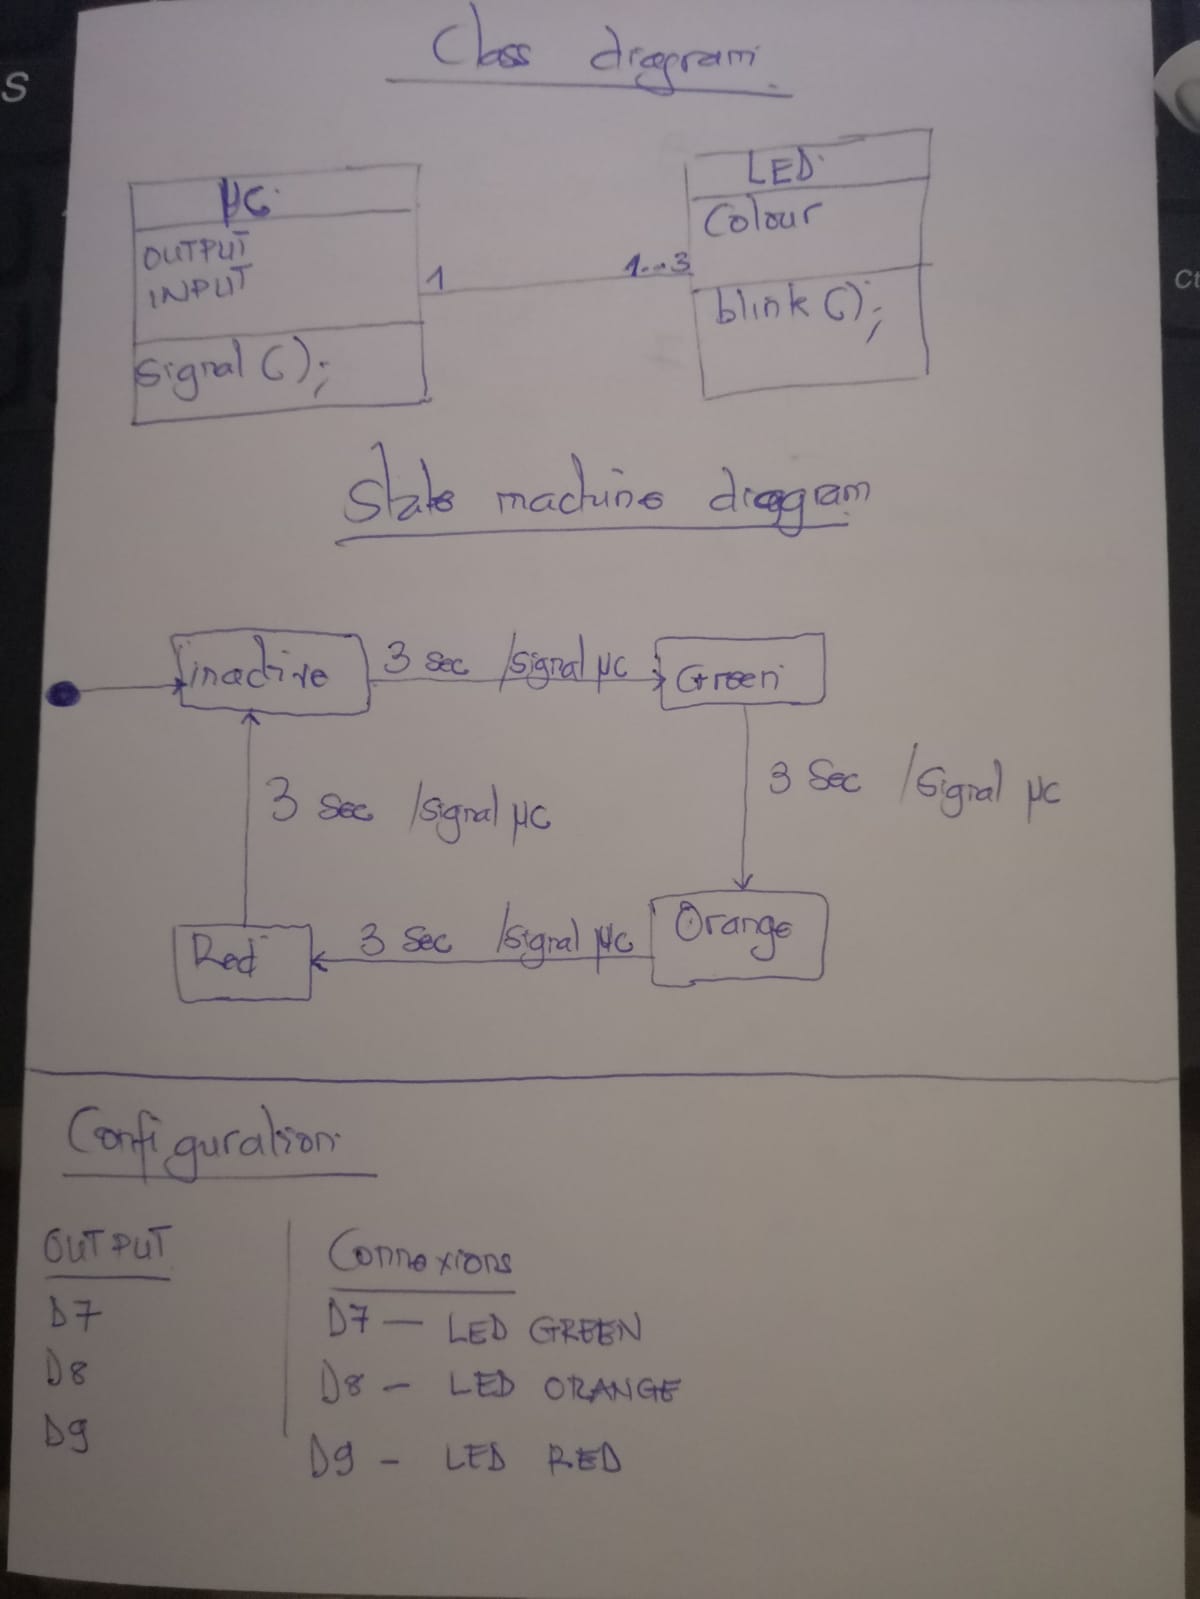 Class diagram
µC
OUTPUT
INPUT
signal ();
1
1...3
LED
Colour
blink ();
State machine diagram
inactive
3 sec /signal µC
Green
3 sec /signal µC
3 Sec /Signal µC
Red
3 Sec /signal µC
Orange
Configuration
OUTPUT
D7
D8
D9
Connexions
D7 — LED GREEN
D8 - LED ORANGE
D9 - LED RED
S
Ct